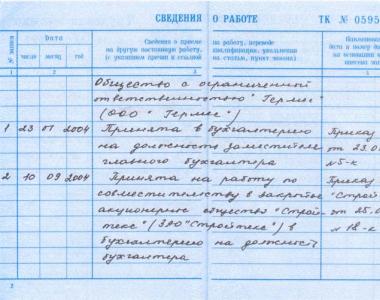 СВЕДЕНИЯ О РАБОТЕ ТК № 0595
№ записи
Дата
число месяц год
Сведения о приеме на работу, переводе
на другую постоянную работу, квалификации, увольнении
(с указанием причин и ссылкой на статью, пункт закона)
Наименование
дата и номер
на основании
внесена
1 2 3
Общество с ограниченной
ответственностью "Гермес"
(ООО "Гермес")
1 23 01 2004 Принята в бухгалтерию Приказ
на должность заместителя от 23.0
главного бухгалтера №5-к
2 10 09 2004 Принята на работу по Приказ
совместительству в закрытое "Строй
акционерное общество "Строй- от 25.0
текс" (ЗАО "Стройтекс") в № 18-к
бухгалтерию на должность
бухгалтера
2